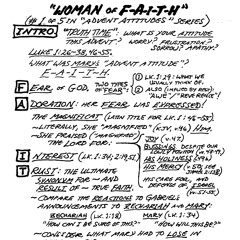 "WOMAN OF F-A-I-T-H"
(#1 OF 5 IN "ADVENT ATTITUDES" SERIES)
INTRO: "TRUTH TIME": WHAT IS YOUR ATTITUDE
THIS ADVENT? WORRY? FRUSTRATION?
SORROW? APATHY?
LUKE 1:26-38, 46-55.
WHAT WAS MARY'S "ADVENT ATTITUDE"?
F-E-A-I-T-H.
FEAR OF GOD. TWO TYPES OF "FEAR":
① LK. 1:29: WHAT WE USUALLY THINK OF.
② ALSO (IMPLIED BY #1): "AWE"/"REVERENCE"!
ADORATION: HER FEAR WAS EXPRESSED!
THE MAGNIFICAT (LATIN TITLE FOR LK. 1:46-55).
-LITERALLY, SHE "MAGNIFIED" (KJV, v46) HIM.
-SHE PRAISED ("MAGNIFIED")
THE LORD FOR:
JOY (v.47).
BLESSINGS, DESPITE OUR
LOWLY POSITION (v. 48-49).
HIS HOLINESS (49b)
HIS MERCY (v. 50; SEE
HIS CARE FOR, AND
DEFENSE OF, ISRAEL
INTEREST (LK. 1:34; 2:19, 51)
TRUST: THE ULTIMATE
SYNONYM FOR — AND
RESULT OF — TRUE FAITH.
-COMPARE THE REACTIONS TO GABRIEL'S
ANNOUNCEMENTS TO ZECHARIAH AND MARY:
ZECHARIAH (LK. 1:18) MARY (LK. 1:34)
"HOW CAN I BE SURE OF THIS?" "HOW WILL THIS BE?"
-CONSIDER WHAT MARY HAD TO LOSE IN